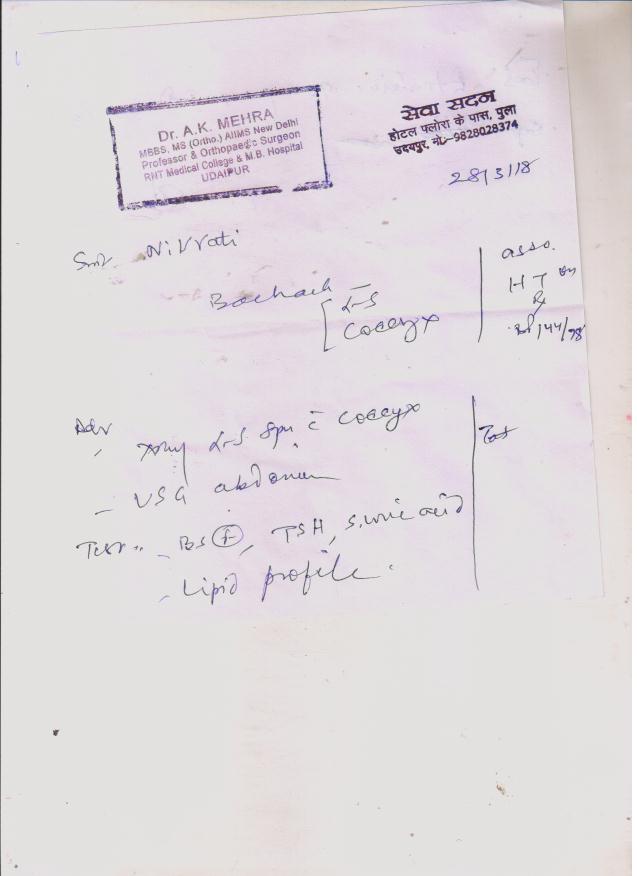 Dr. A.K. MEHRA
MBBS, MS (Ortho.) AIIMS New Delhi
Professor & Orthopaedic Surgeon
RNT Medical College & M.B. Hospital
UDAIPUR
सेवा सदन
होटल फ्लोरा के पास, पुला
उदयपुर, मो.-9828028374
28/3/18
Smt Nivrati
asso.
HT on
Rx
BP 144/98
Backach
L-S
Coccyx
Adv
xray L-S Spn c̄ Coccyx
- USG abdomen
Test :- BS (F), TSH, S. uric acid
- Lipid profile.